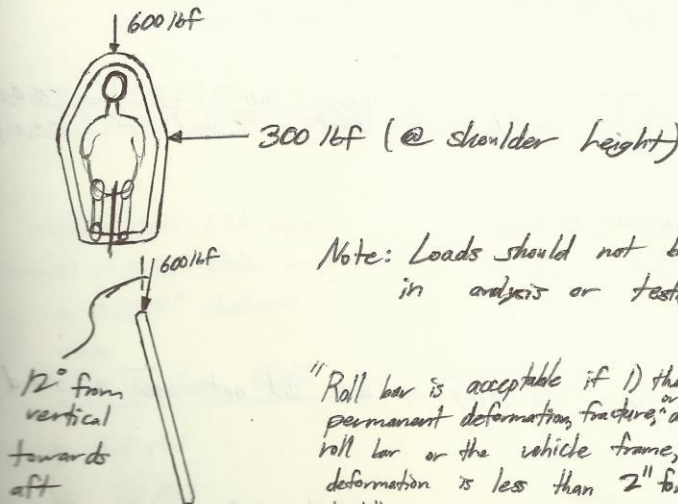 600 lbf
300 lbf (@ shoulder height)
600 lbf
Note: Loads should not b
in analysis or test
12° from
vertical
towards
aft
"Roll bar is acceptable if 1) the
or
permanent deformation, fracture,"
roll bar or the vehicle frame,
deformation is less than 2" fo